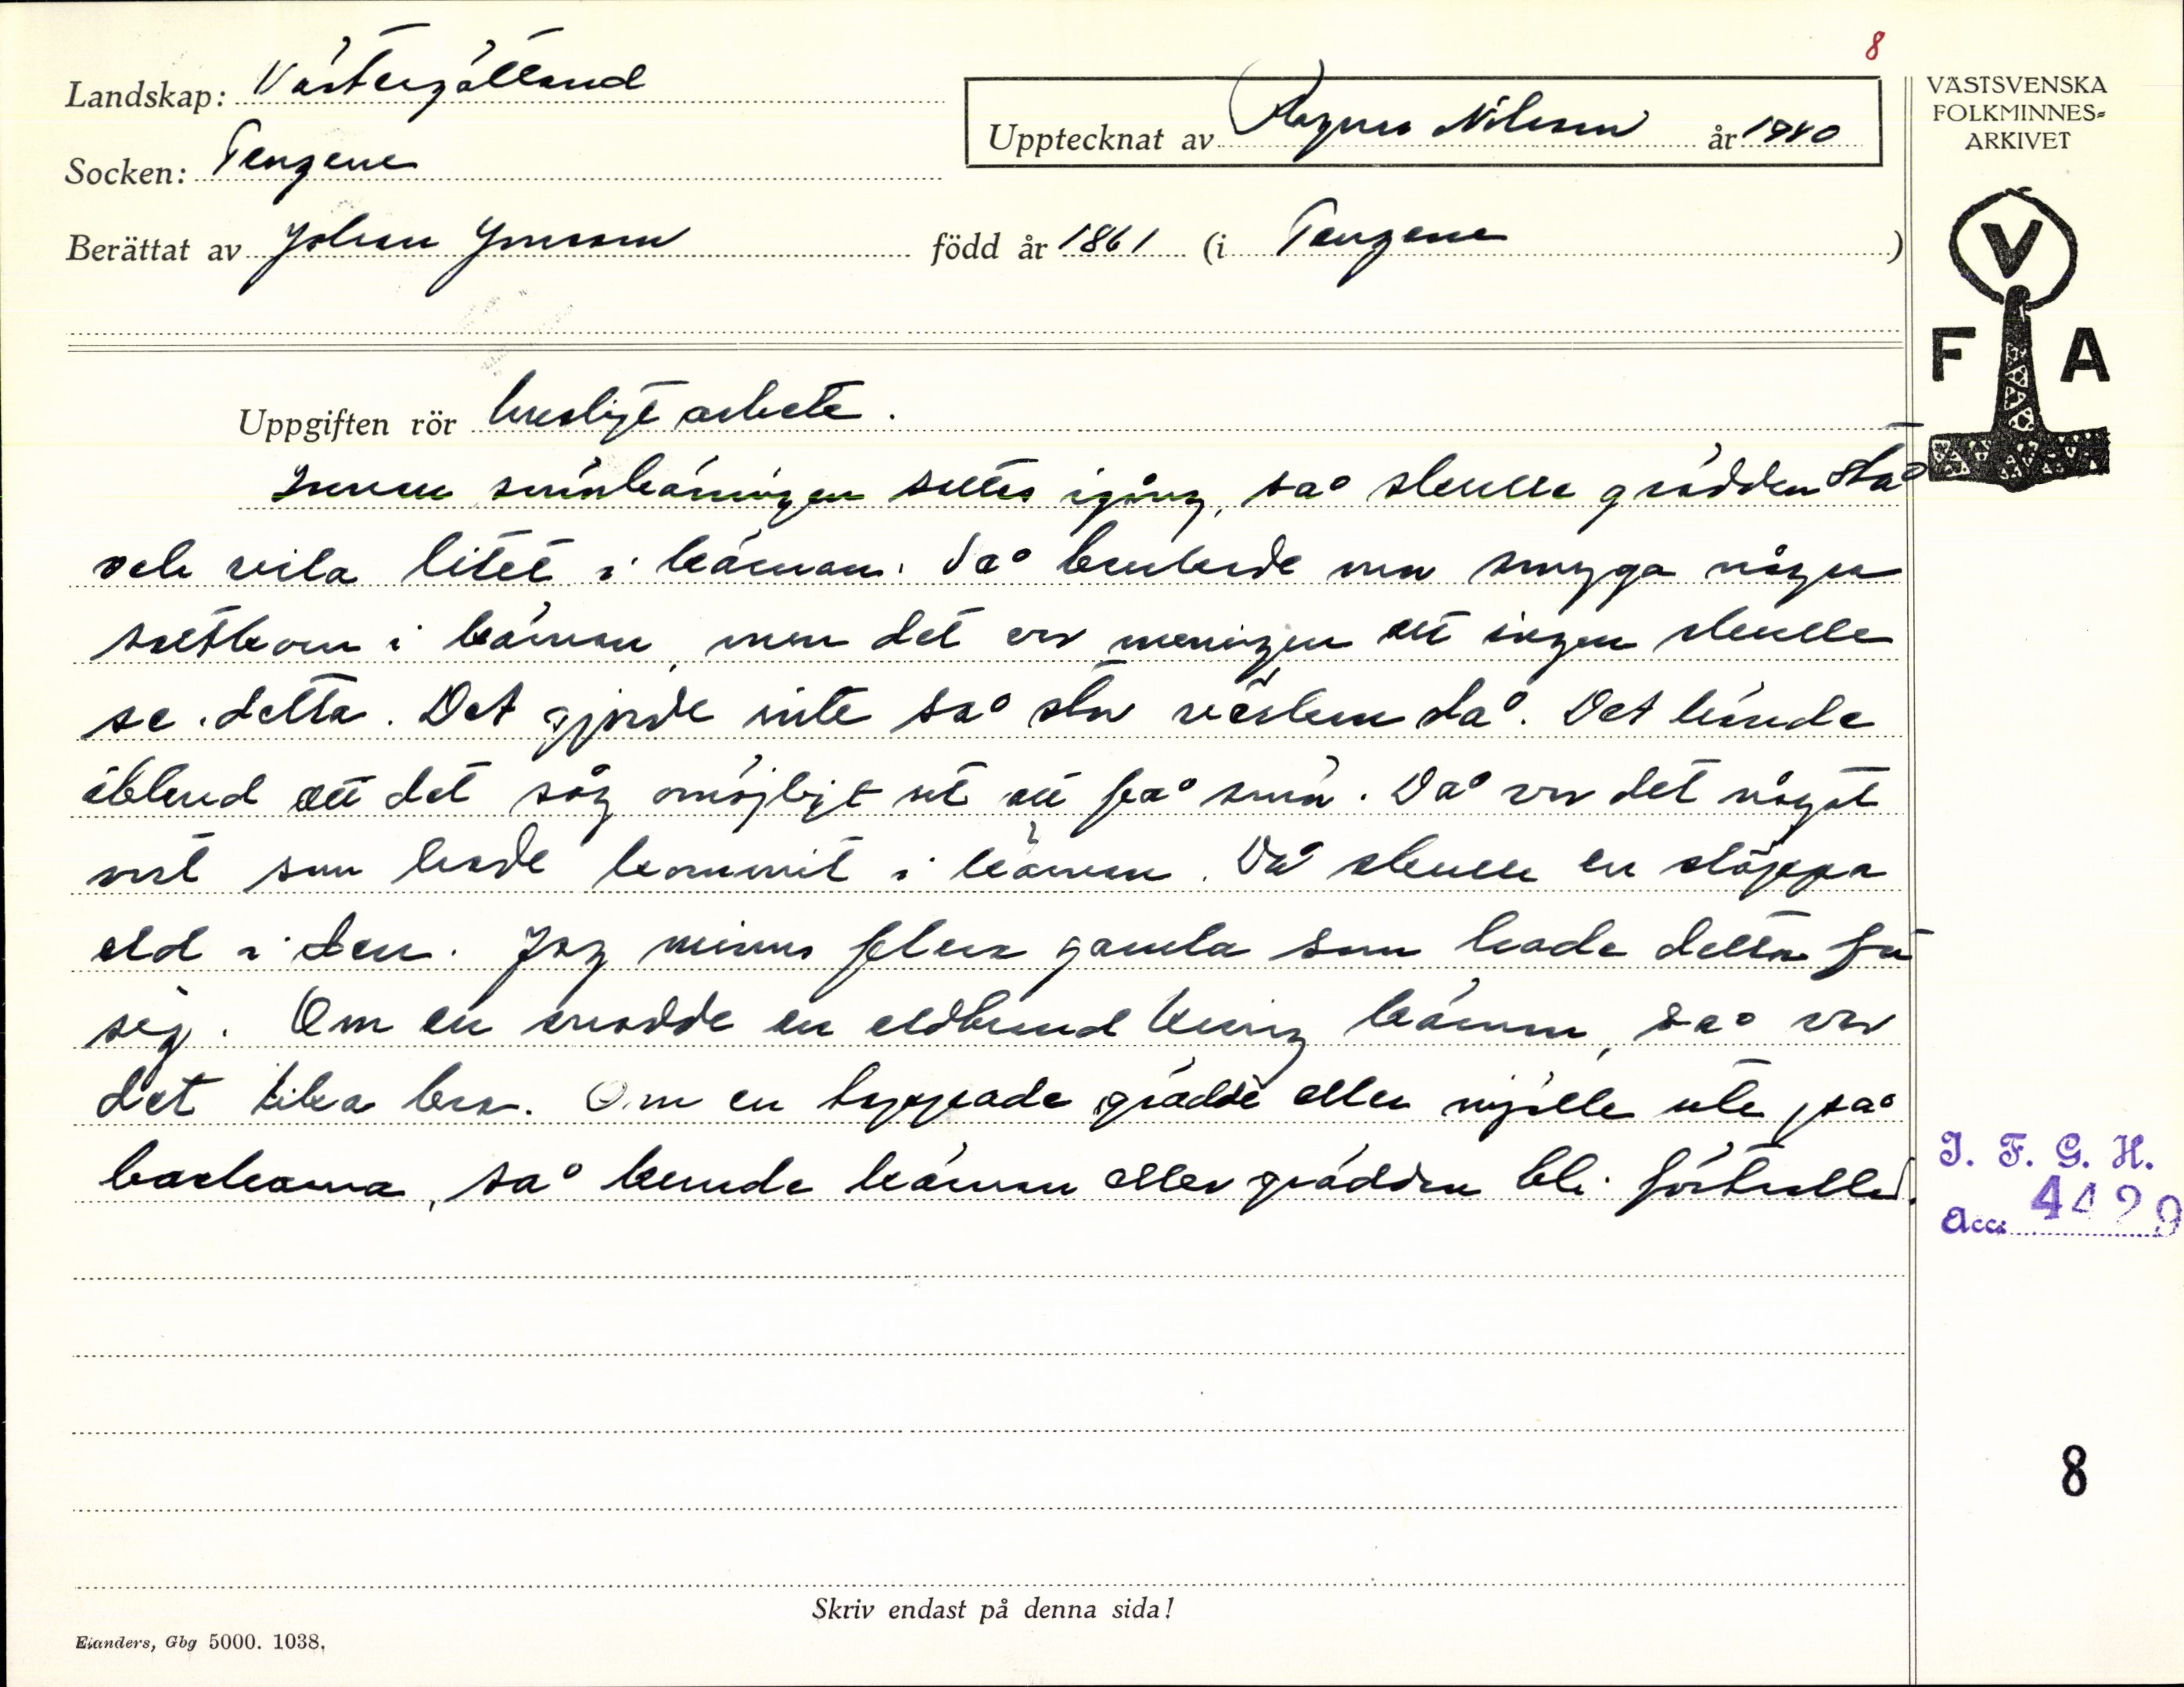 8
Landskap: Västergötland
Upptecknat av Ragnar Nilsson år 1940
VÄSTSVENSKA
FOLKMINNES-
ARKIVET
Socken: Tengene
Berättat av Johan Jonsson född år 1861 (i Tengene)
V
F A
Uppgiften rör husligt arbete.
Innan smörkärningen sattes igång, så skulle grädden stå
och vila litet i kärnan. Så brukade man smyga några
saltkorn i kärnan, men det var meningen att ingen skulle
se detta. Det gjorde inte så stor väsen då. Det hände
ibland att det såg omöjligt ut att få smör. Då var det något
ont som hade kommit i kärnan. Då skulle en släppa
eld i den. Jag minns flera gamla som hade detta för
sig. Om en snodde en eldbrand kring kärnan, så var
det lika bra. Om en tappade grädde eller mjölk ute på
backarna, så kunde kärnan eller grädden bli förtrollad.
I. F. G. H.
Acc. 4429
8
Skriv endast på denna sida!
Elanders, Gbg 5000. 1038.